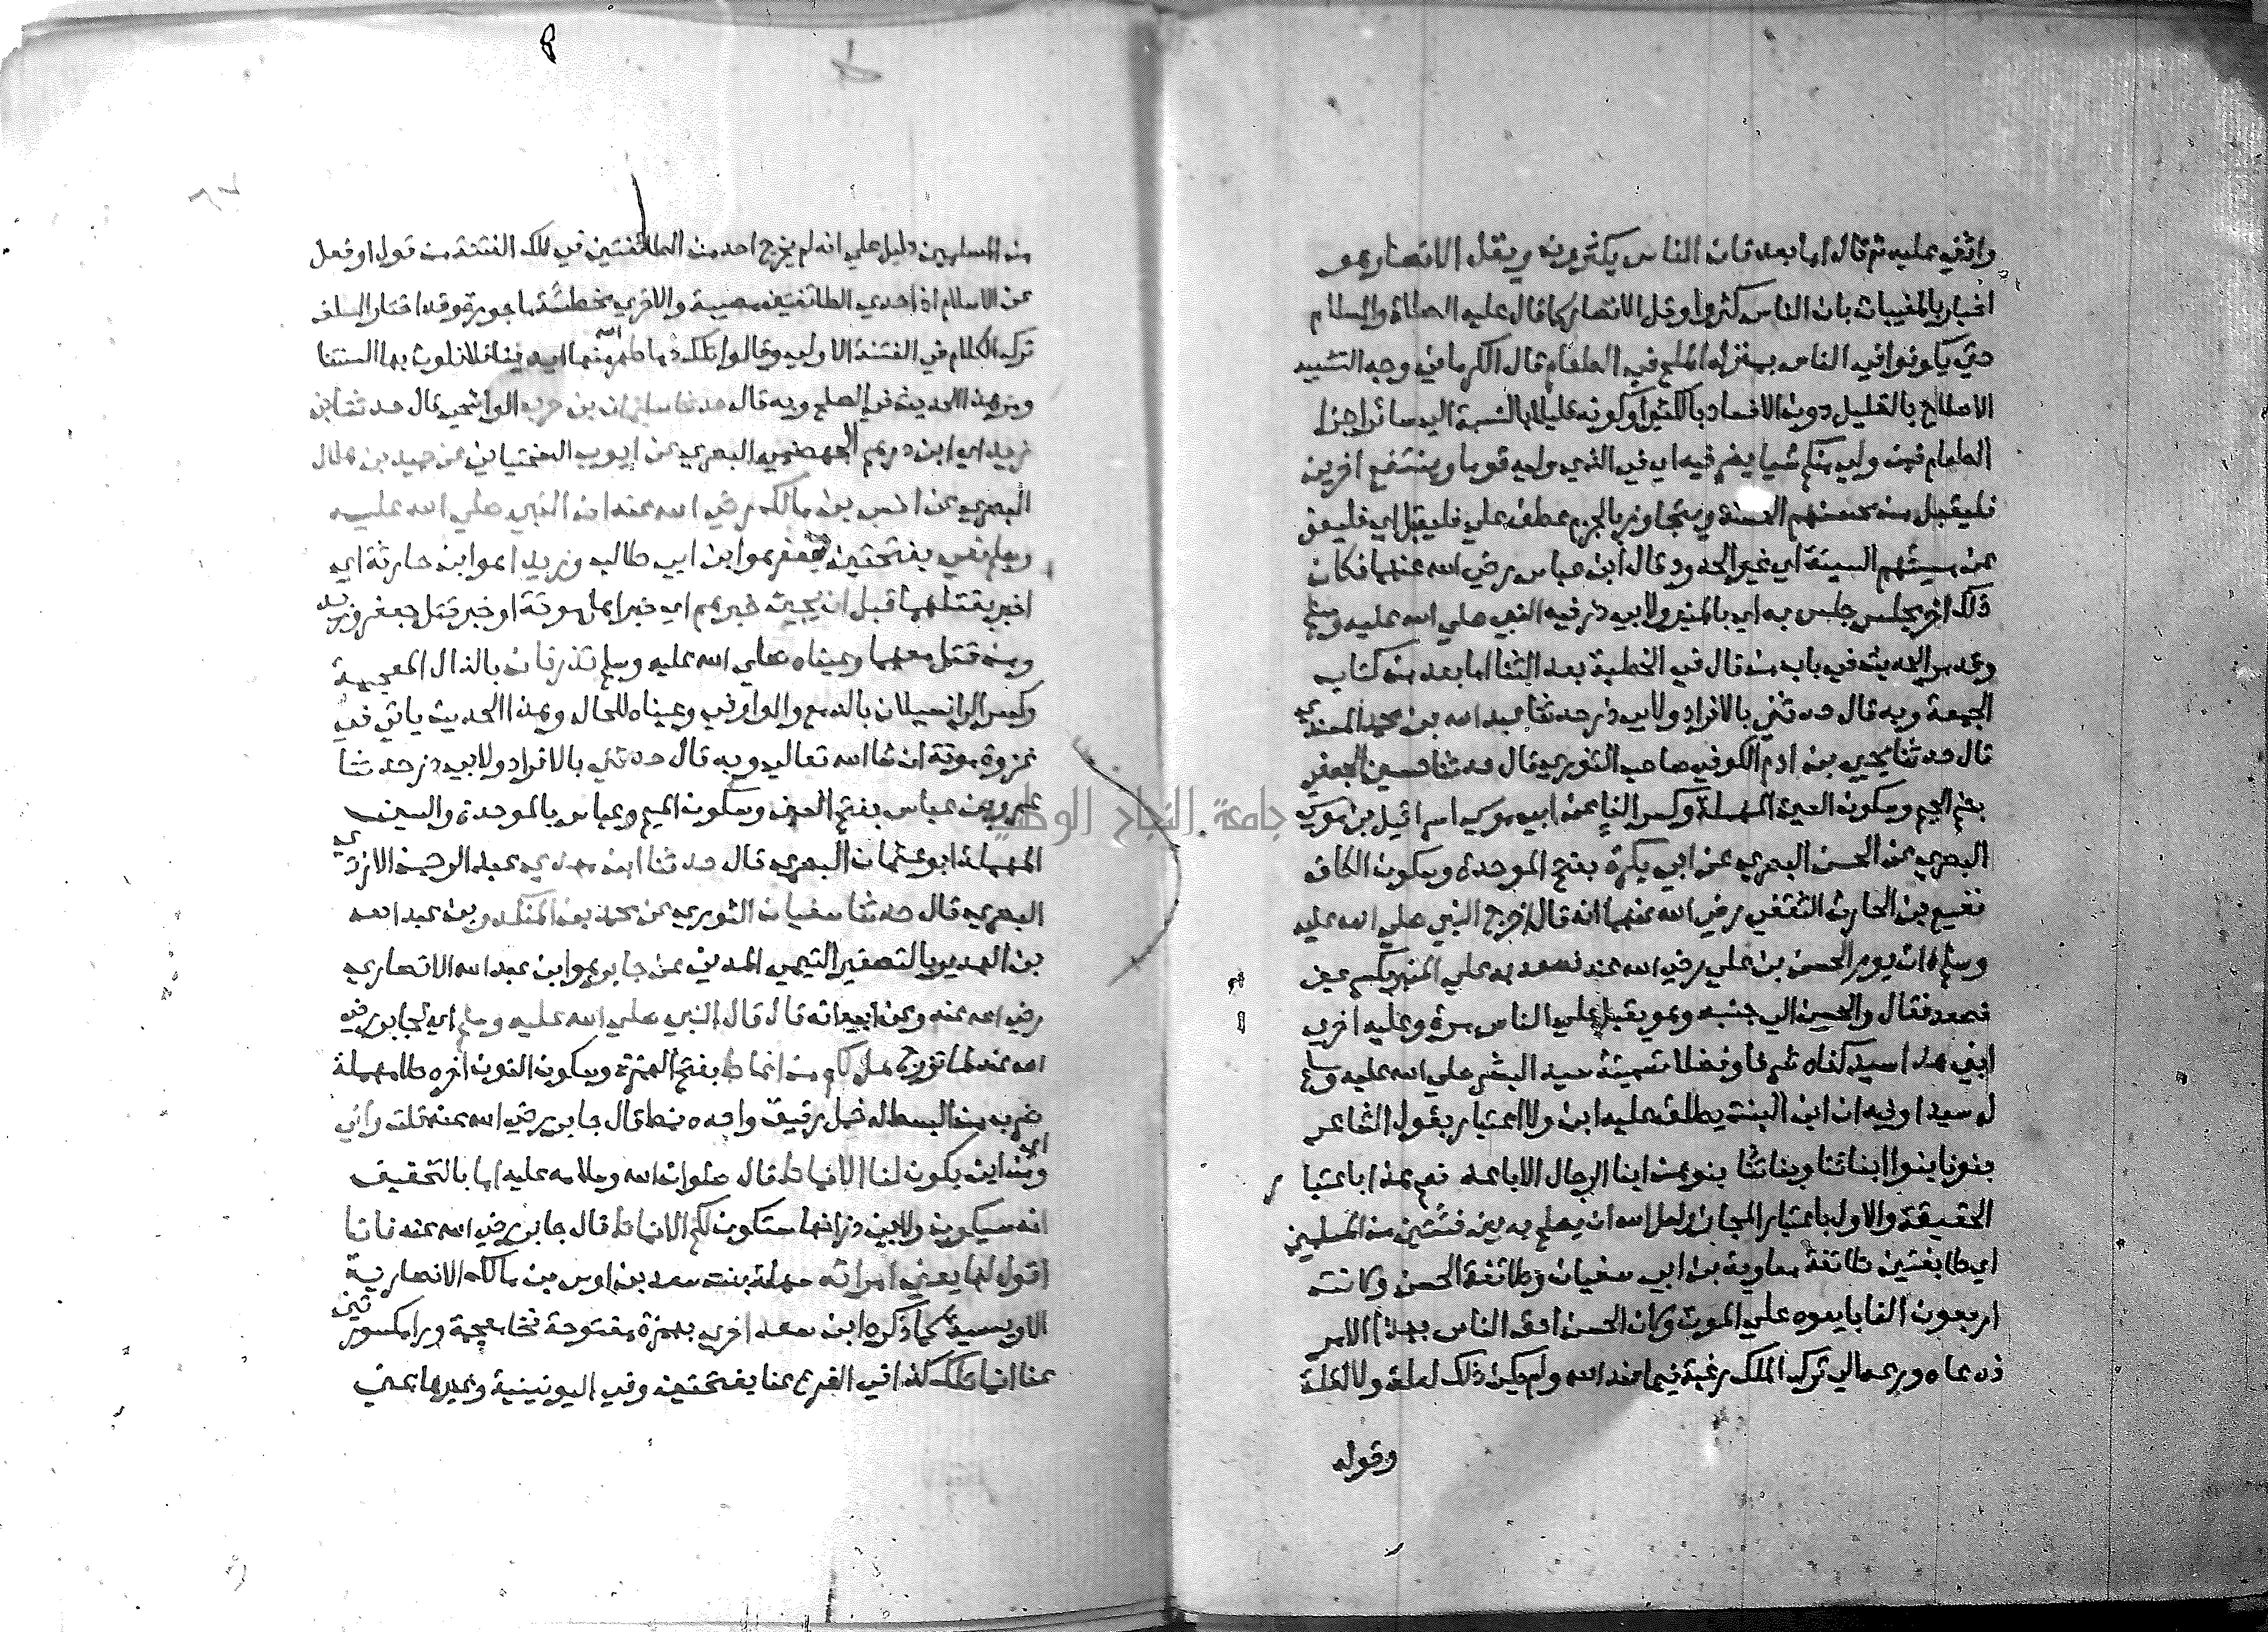 واثني عليه ثم قال اما بعد فان الناس يكثرون ويقل الانصار هو
اخبار بالمغيبات بان الناس كثروا وقل الانصار كما قال عليه الصلاة والسلام
حتي يكونوا في الناس بمنزلة الملح في الطعام قال الكرماني وجه التشبيه
الاصلاح بالقليل دون الافساد بالكثير او كونه قليلا بالنسبة الي سائر اجزا
الطعام فمن ولي منكم شيا يضر فيه اي في الذي وليه قوما وينتفع اخرين
فليقبل من محسنهم الحسنة ويتجاوز بالجزم عطف علي فليقبل اي فليعف
عن مسيئهم السيئة اي غير الحدود قال ابن عباس رضي الله عنهما فكان
ذلك اخر مجلس جلس به اي بالمنبر ولابي ذر فيه النبي صلي الله عليه وسلم
وقد مر الحديث في باب من قال في الخطبة بعد الثنا اما بعد من كتاب
الجمعة وبه قال حدثني بالافراد ولابي ذر حدثنا عبد الله بن محمد المسندي
قال حدثنا يحيي بن ادم الكوفي صاحب الثوري قال حدثنا حسين الجعفي
بضم الجيم وسكون العين المهملة وكسر الفا عن ابي موسي اسرائيل بن موسي
البصري عن الحسن البصري عن ابي بكرة بفتح الموحدة وسكون الكاف
نفيع بن الحارث الثقفي رضي الله عنهما انه قال اخرج النبي صلي الله عليه
وسلم ذات يوم الحسن بن علي رضي الله عنه فصعد به علي المنبر بكسر عين
فصعد فقال والحسن الي جنبه وهو يقبل علي الناس مرة وعليه اخري
ابني هذا سيد كفاه شرفا وفضلا تسمية سيد البشر صلي الله عليه وسلم
له سيدا وفيه ان ابن البنت يطلق عليه ابن ولا اعتبار بقول الشاعر
بنونا بنوا ابنائنا وبناتنا بنوهن ابنا الرجال الاباعد نعم هذا باعتبا
الحقيقة والاول باعتبار المجاز ولعل الله ان يصلح به بين فئتين من المسلمين
اي طايفتين طائفة معاوية بن ابي سفيان وطائفة الحسن وكانت
اربعون الفا بايعوه علي الموت وكان الحسن احق الناس بهذا الامر
فدعاه ورعه الي ترك الملك رغبة فيما عند الله ولم يكن ذلك لعلة ولا لقلة
وقوله
من المسلمين دليل علي انه لم يخرج احد من الطائفتين في تلك الفتنة من قول او فعل
عن الاسلام اذ احدي الطائفتين مصيبة والاخري مخطئة ماجورة وقد اختار السلف
ترك الكلام في الفتنة الاولي وقالوا تلك دما طهر الله منها ايدينا فلا نلوث بها السنتنا
ومر هذا الحديث في الصلح وبه قال حدثنا سليمان بن حرب الواشحي قال حدثنا
زيد اي ابن درهم الجهضمي البصري عن ايوب السختياني عن حميد بن هلال
البصري عن انس بن مالك رضي الله عنه ان النبي صلي الله عليه
وسلم نعي بفتحتين جعفر هو ابن ابي طالب وزيدا هو ابن حارثة اي
اخبر بقتلهما قبل ان يجيئ خبرهم اي خبر اهل موتة او خبر قتل جعفر وزيد
ومن قتل معهما وعيناه صلي الله عليه وسلم تذرفان بالذال المعجمة
وكسر الرا تسيلان بالدمع والواو في وعيناه للحال وهذا الحديث ياتي في
غزوة موتة ان شا الله تعالي وبه قال حدثني بالافراد ولابي ذر حدثنا
عمرو بن عباس بفتح العين وسكون الميم وعباس بالموحدة والسين
المهملة ابو عثمان البصري قال حدثنا ابن مهدي عبد الرحمن الازدي
البصري قال حدثنا سفيان الثوري عن محمد بن المنكدر بن عبد الله
بن الهدير بالتصغير التيمي المدني عن جابر هو ابن عبد الله الانصاري
رضي الله عنه وعن ابيه انه قال قال النبي صلي الله عليه وسلم اي لجابر رضي
الله عنه لما تزوج هل لكم من انماط بفتح الهمزة وسكون النون اخره طا مهملة
ضرب من البسط له خمل رقيق واحده نمط قال جابر رضي الله عنه قلت واني
اي ومن اين يكون لنا الانماط قال صلوات الله وسلامه عليه اما بالتخفيف
انه سيكون ولابي ذر انها ستكون لكم الانماط قال جابر رضي الله عنه فانا
اقول لها يعني امراته سهلة بنت سعد بن اوس بن مالك الانصارية
الاوسية كما ذكره ابن سعد اخري بهمزة مفتوحة فخا معجمة ورا مكسورتين
عنا انماطك كذا في الفرع عنا بفتحتين وفي اليونينية وغيرها عني
جامعة النجاح الوطنية